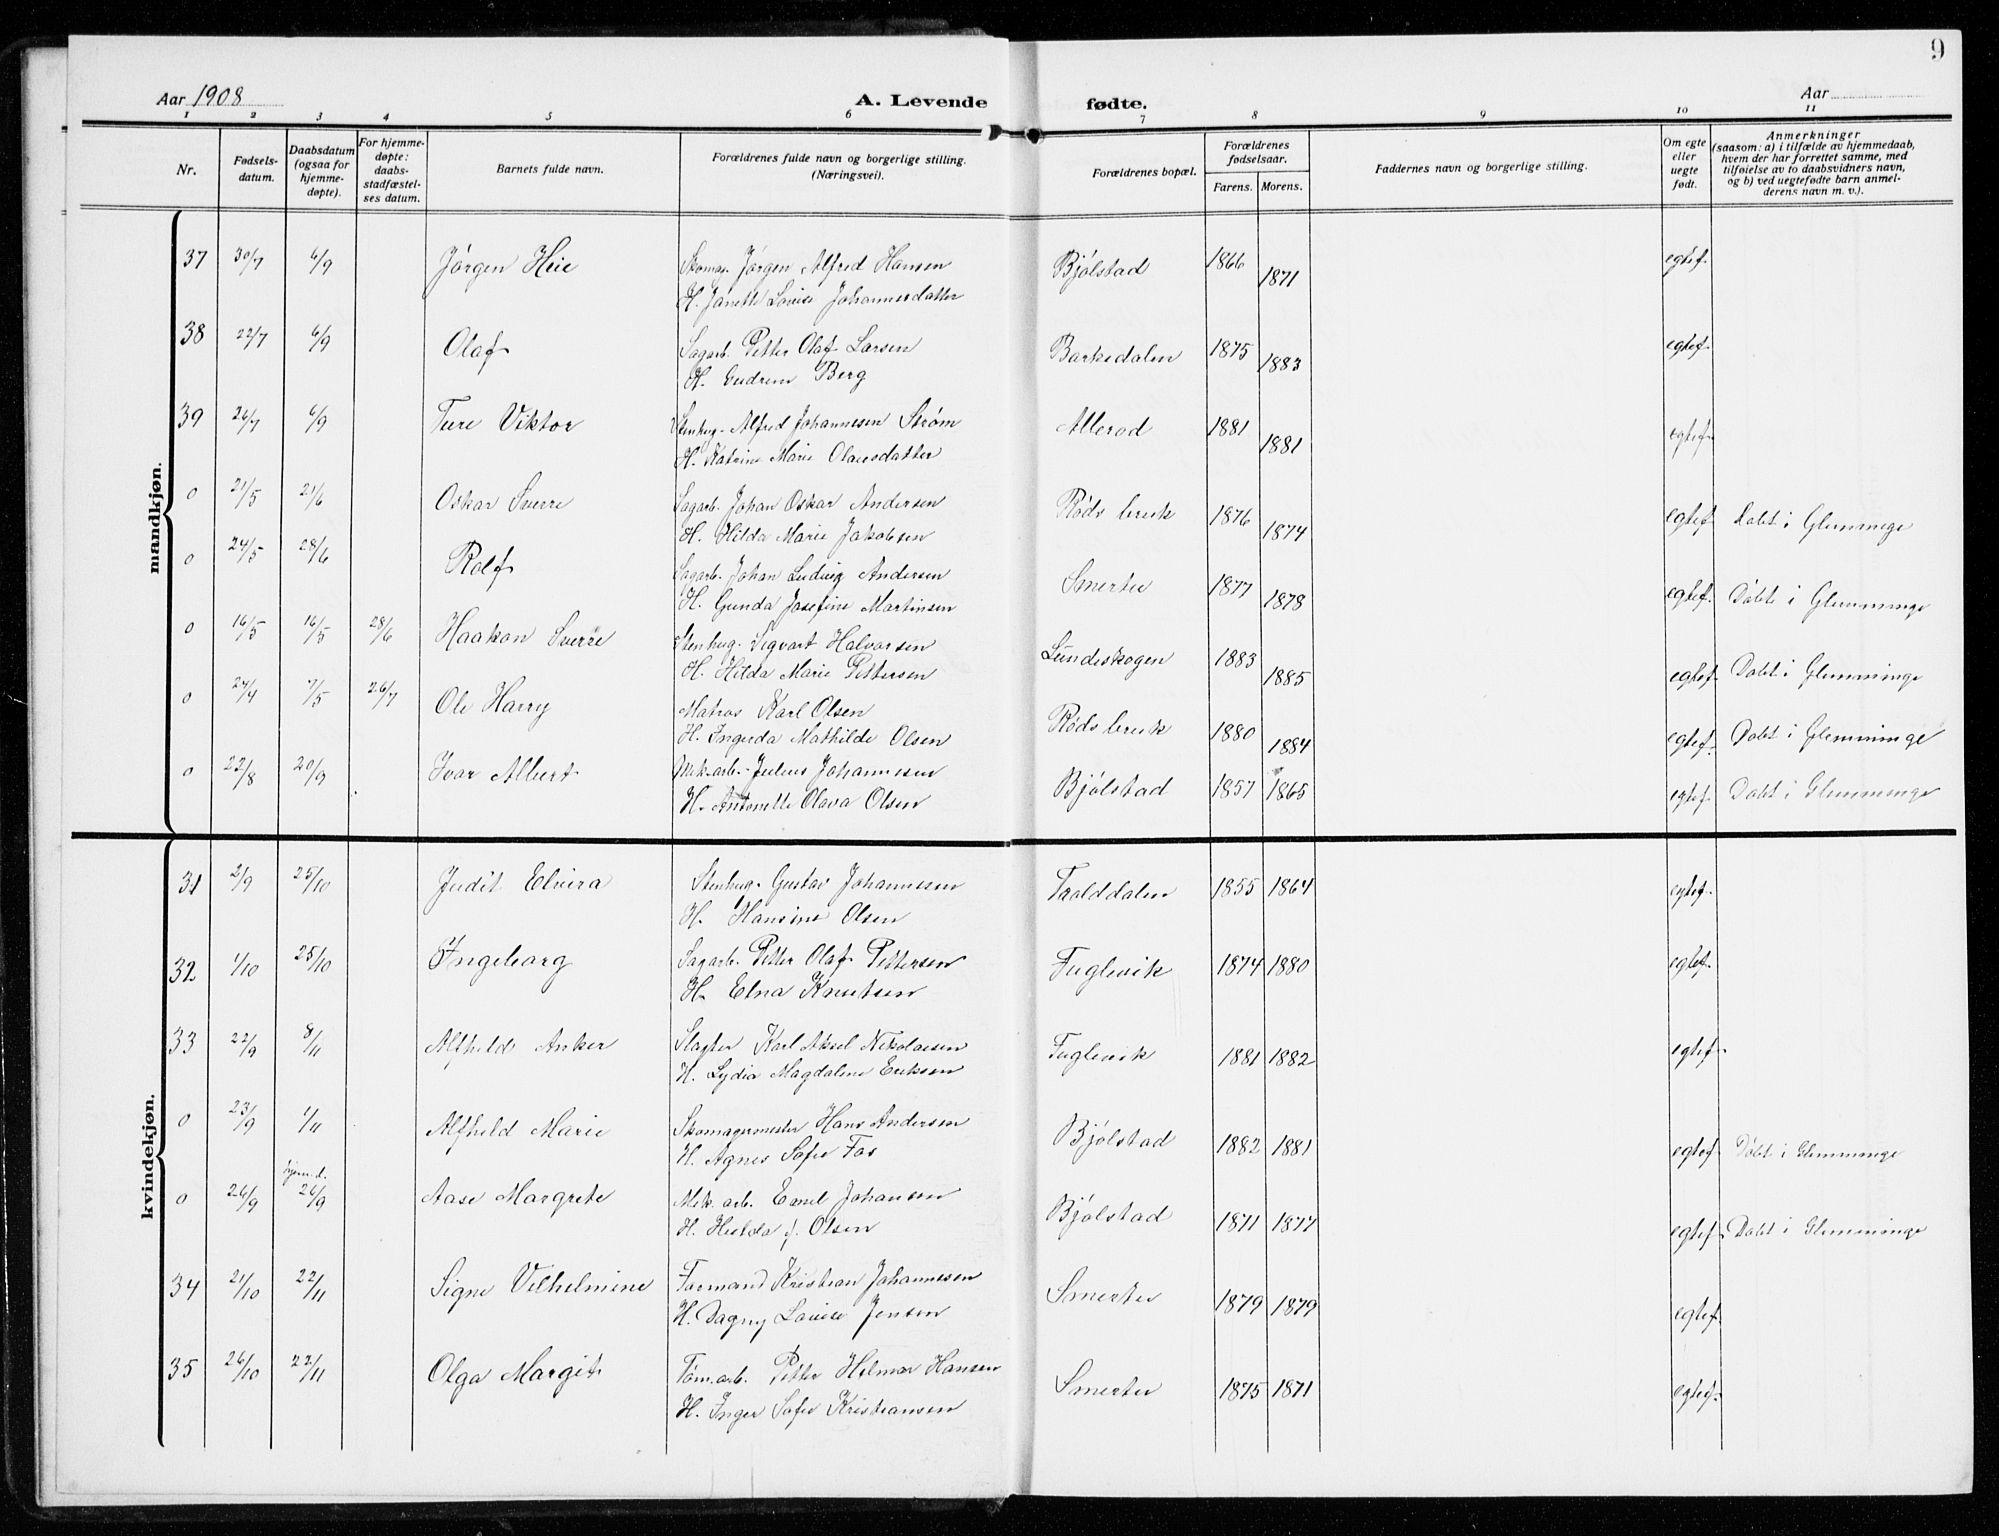 9
Aar 1908 A. Levende fødte. Aar
1 2 3 4 5 6 7 8 9 10 11
Nr. Fødsels-datum. Daabsdatum (ogsaa for hjemme-døpte). For hjemme-døpte: daabs-stadfæstel-ses datum. Barnets fulde navn. Forældrenes fulde navn og borgerlige stilling. (Næringsvei). Forældrenes bopæl. Forældrenes fødselsaar. Farens. Morens. Faddernes navn og borgerlige stilling. Om egte eller uegte født. Anmerkninger (saasom: a) i tilfælde av hjemmedaab, hvem der har forrettet samme, med tilføielse av to daabsvidners navn, og b) ved uegtefødte barn anmel-derens navn m. v.).
mandkjøn.
37 30/7 6/9 Jørgen Heie Skomag. Jørgen Alfred Hansen Bjølstad 1866 1871 egtef.
H. Janette Lovise Johannesdatter
38 22/7 6/9 Olaf Sagarb. Petter Olaf Larsen Barkedalen 1875 1883 egtef.
H. Gudrun Berg
39 26/7 6/9 Ture Viktor Stenhug. Alfred Johannesen Strøm Allerød 1881 1881 egtef.
H. Katrine Marie Olausdatter
0 21/5 21/6 Oskar Sverre Sagarb. Johan Oskar Andersen Røds bruk 1876 1874 egtef. Døbt i Glemminge
H. Hilda Marie Jakobsen
0 24/5 28/6 Rolf Sagarb. Johan Ludvig Andersen Smertu 1877 1878 egtef. Døbt i Glemminge
H. Gunda Josefine Martinsen
0 16/5 16/5 28/6 Haakon Sverre Stenhug. Sigvart Halvorsen Lundeskogen 1883 1885 egtef. Døbt i Glemminge
H. Hilda Marie Pettersen
0 24/4 7/5 26/7 Ole Harry Matros Karl Olsen Røds bruk 1880 1884 egtef. Døbt i Glemminge
H. Ingerda Mathilde Olsen
0 22/8 20/9 Ivar Albert Mek.arb. Julius Johannesen Bjølstad 1857 1865 egtef. Døbt i Glemminge
H. Antonette Olava Olsen
kvindekjøn.
31 2/9 25/10 Judit Elvira Stenhug. Gustav Johannesen Taalddalen 1855 1864 egtef.
H. Hansine Olsen
32 1/10 25/10 Ingeborg Sagarb. Petter Olaf Pettersen Fuglevik 1874 1880 egtef.
H. Elna Knutsen
33 22/9 8/11 Alfhild Anker Slagter Karl Aksel Nikolaisen Fuglevik 1881 1882 egtef.
H. Lydia Magdalene Eriksen
0 23/9 1/11 Alfhild Marie Skomagermester Hans Andersen Bjølstad 1882 1881 egtef. Døbt i Glemminge
H. Agnes Sofie Fos
hjem.d.
0 26/9 26/9 Aase Margrete Mek. arb. Emil Johansen Bjølstad 1871 1877 egtef. Døbt i Glemminge
H. Hulda f. Olsen
34 21/10 22/11 Signe Vilhelmine Formand Kristian Johannesen Smertu 1879 1879 egtef.
H. Dagny Lovise Jensen
35 26/10 22/11 Olga Margit Tøm.arb. Petter Hilmar Hansen Smertu 1875 1871 egtef.
H. Inger Sofie Kristiansen